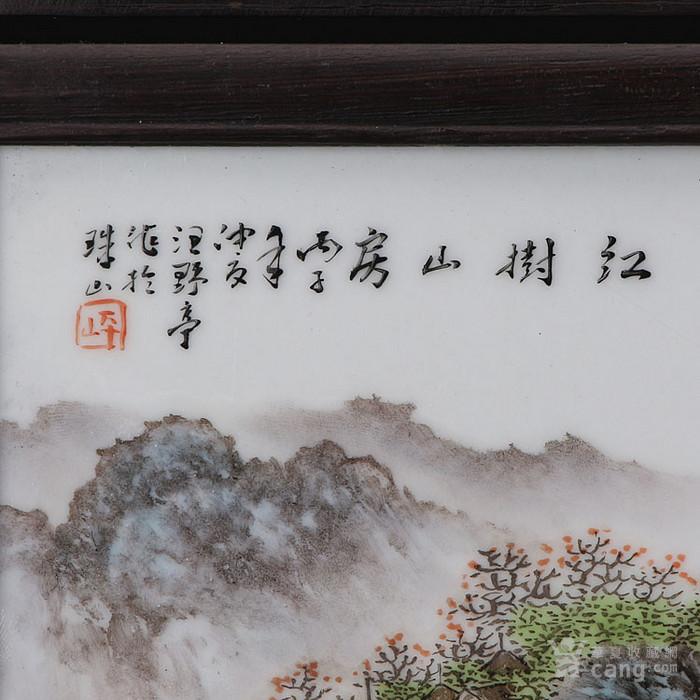 红樹山房
丙子
年
仲夏
汪野亭
作於
珠山
平山
华夏收藏網
cang.com